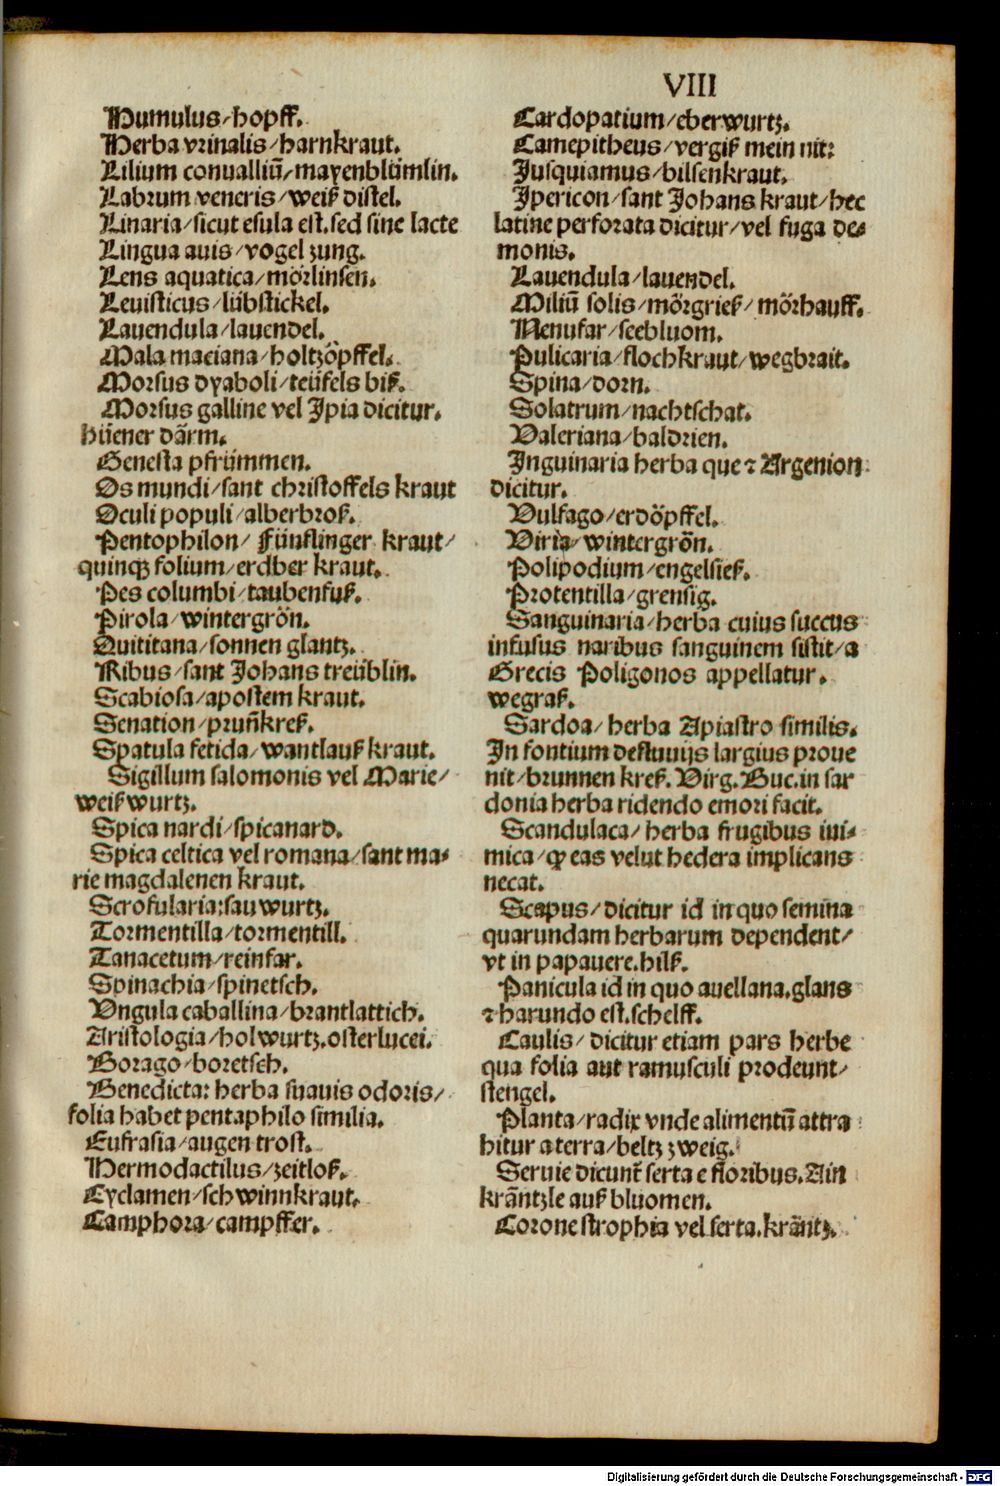 VIII
Humulus/hopff.
Herba vrinalis/harnkraut.
Lilium conualliū/mayenblümlin.
Labrum veneris/weiß distel.
Linaria/sicut esula est.sed sine lacte
Lingua auis/vogel zung.
Lens aquatica/mörlinsen.
Leuisticus/lübstickel.
Lauendula/lauendel.
Mala maciana/holtzöpffel.
Morsus dyaboli/teüfels biß.
Morsus galline vel Ipia dicitur.
hüener därm.
Genesta pfrümmen.
Os mundi/sant christoffels kraut
Oculi populi/alberbroß.
Pentophilon/ Fünflinger kraut/
quinqꝫ folium/erdber kraut.
Pes columbi/taubenfuß.
Pirola/wintergrön.
Quititana/sonnen glantz.
Ribus/sant Johans treüblin.
Scabiosa/apostem kraut.
Senation/prun̄kreß.
Spatula fetida/wantlauß kraut.
Sigillum salomonis vel Marie/
weißwurtz.
Spica nardi/spicanard.
Spica celtica vel romana/sant ma⸗
rie magdalenen kraut.
Scrofularia:sauwurtz.
Tormentilla/tormentill.
Tanacetum/reinfar.
Spinachia/spinetsch.
Vngula caballina/brantlattich.
Aristologia/holwurtz.osterlucei.
Borago/boretsch.
Benedicta: herba suauis odoris/
folia habet pentaphilo similia.
Eufrasia/augen trost.
Hermodactilus/zeitloß.
Cyclamen/schwinnkraut.
Camphora/campffer.
Cardopatium/eberwurtz.
Camepitheus/vergiß mein nit:
Jusquiamus/bilsenkraut.
Ipericon/sant Johans kraut/hec
latine perforata dicitur/vel fuga de⸗
monis.
Lauendula/lauendel.
Miliū solis/mörgrieß/mörhauff.
Nenufar/seebluom.
Pulicaria/flochkraut/wegbrait.
Spina/dorn.
Solatrum/nachtschat.
Valeriana/baldrien.
Inguinaria herba que ⁊ Argenion
dicitur.
Vulfago/erdöpffel.
Viria/wintergrön.
Polipodium/engelsieß.
Protentilla/grensig.
Sanguinaria/herba cuius succus
infusus naribus sanguinem sistit/a
Grecis Poligonos appellatur.
wegraß.
Sardoa/herba Apiastro similis.
In fontium defluuijs largius proue
nit/brunnen kreß. Virg. Buc.in sar
donia herba ridendo emori facit.
Scandulaca/herba frugibus ini⸗
mica/ꝙ eas velut hedera implicans
necat.
Scapus/dicitur id in quo semina
quarundam herbarum dependent/
vt in papauere.hilß.
Panicula id in quo auellana.glans
⁊ harundo est.schelff.
Caulis/dicitur etiam pars herbe
qua folia aut ramusculi prodeunt/
stengel.
Planta/radix vnde alimentū attra
hitur a terra/beltz zweig.
Seruie dicunt̄ serta e floribus.Ain
kräntzle auß bluomen.
Corone strophia vel serta.kräntz.
Digitalisierung gefördert durch die Deutsche Forschungsgemeinschaft - DFG